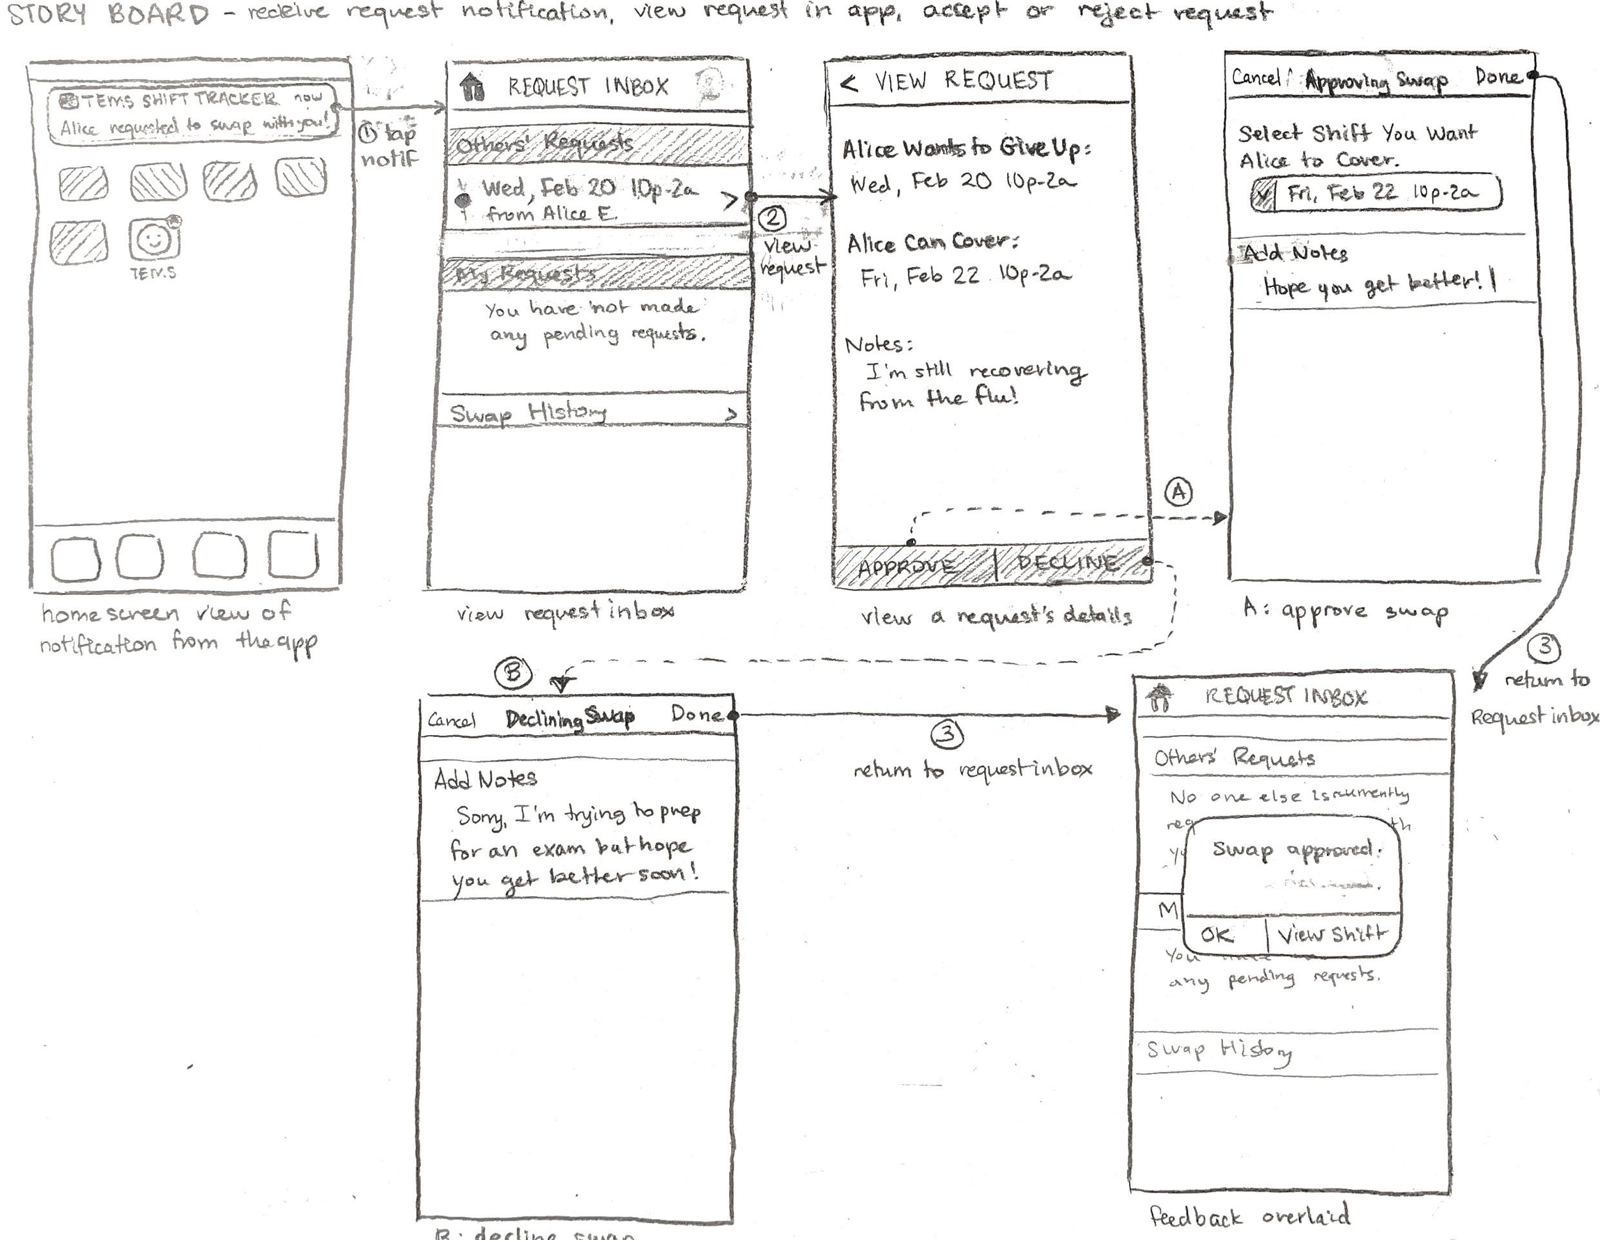 STORY BOARD - receive request notification, view request in app, accept or reject request
TEMS SHIFT TRACKER now
Alice requested to swap with you!
TEMS
① tap
notif
home screen view of
notification from the app
REQUEST INBOX
Others' Requests
Wed, Feb 20 10p-2a >
from Alice E.
My Requests
You have not made
any pending requests.
Swap History >
view request inbox
②
view
request
< VIEW REQUEST
Alice Wants to Give Up:
Wed, Feb 20 10p-2a
Alice Can Cover:
Fri, Feb 22 10p-2a
Notes:
I'm still recovering
from the flu!
APPROVE | DECLINE
view a request's details
Ⓐ
Cancel Approving Swap Done
Select Shift You Want
Alice to Cover.
Fri, Feb 22 10p-2a
Add Notes
Hope you get better!|
A: approve swap
③
return to
Request inbox
Ⓑ
Cancel Declining Swap Done
Add Notes
Sorry, I'm trying to prep
for an exam but hope
you get better soon!
B: decline swap
③
return to request inbox
REQUEST INBOX
Others' Requests
No one else is currently
req th
y
Swap approved.
M
OK | View Shift
You
any pending requests.
Swap History
feedback overlaid